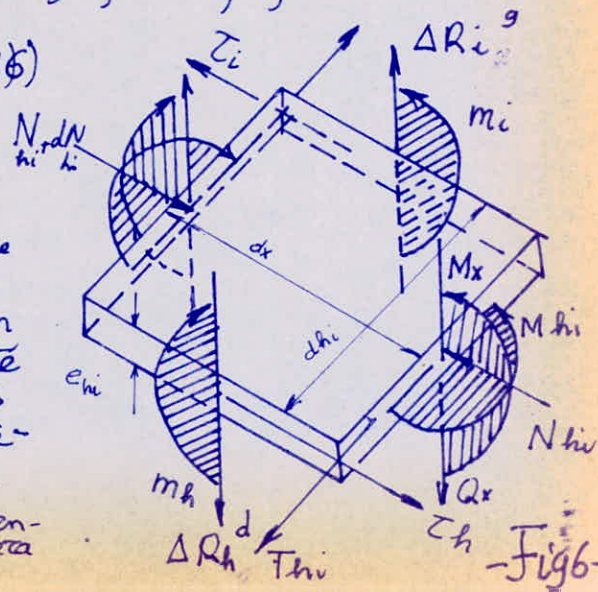 6)
τi
ΔRi g
mi
Nhi+dNhi
dx
Mx
dhi
Mhi
ehi
Nhi
mh
Qx
τh
ΔRh d
Thi
-Fig6-
en-